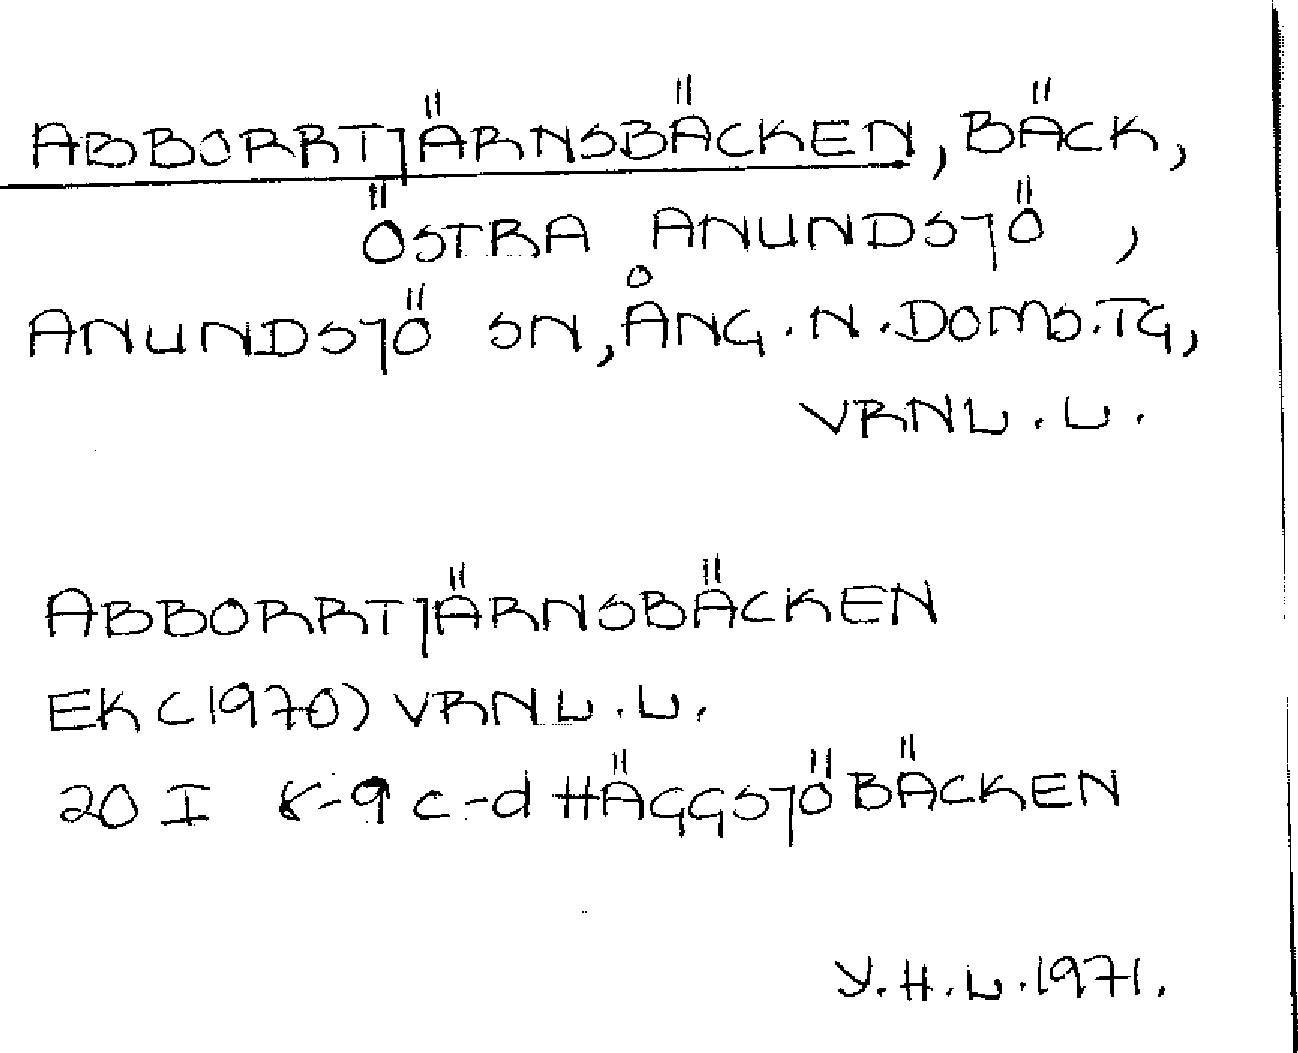 ABBORRTJÄRNSBÄCKEN, BÄCK,
ÖSTRA ANUNDSJÖ,
ANUNDSJÖ SN, ÅNG. N. DOMS. TG,
VRNL. L.
ABBORRTJÄRNSBÄCKEN
EK (1970) VRNL. L.
20 I 8-9 c-d HÄGGSJÖBÄCKEN
Y. H. L. 1971.